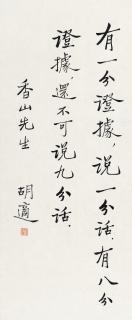 有一分證據，说一分话.有八分
證據，還不可说九分话.
香山先生
胡適